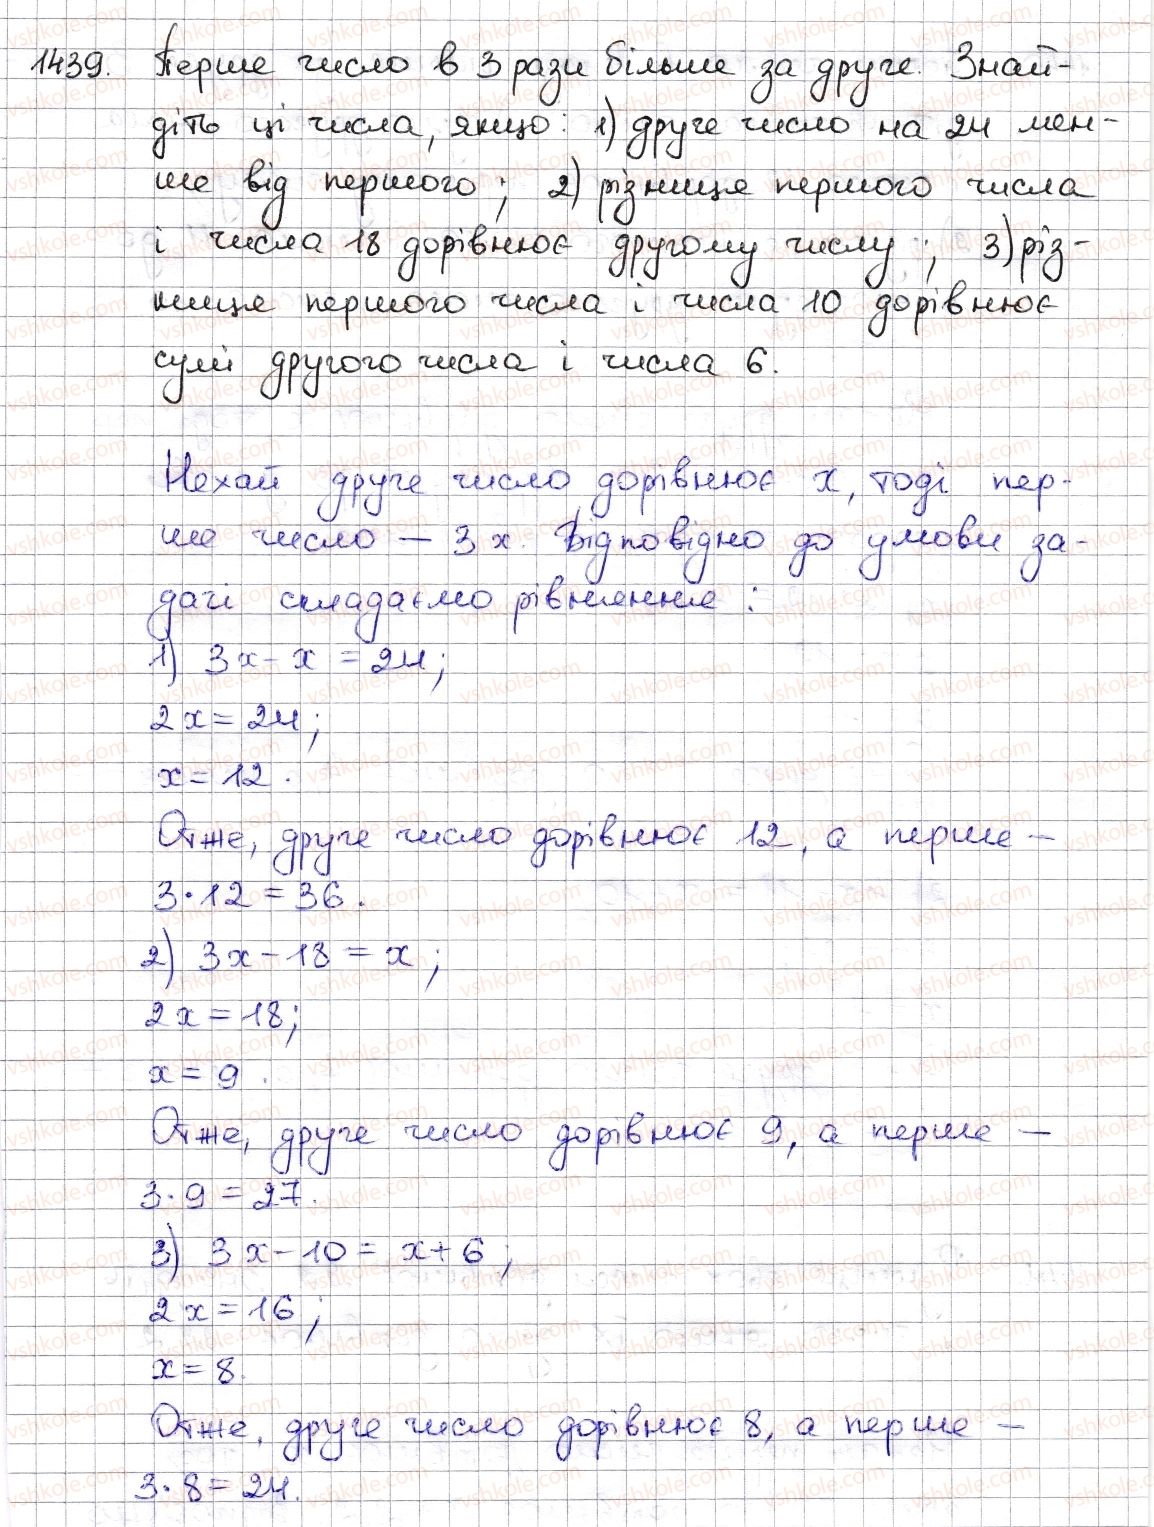 1439. Перше число в 3 рази більше за друге. Знай-
діть ці числа, якщо: 1) друге число на 24 мен-
ше від першого; 2) різниця першого числа
і числа 18 дорівнює другому числу; 3) різ-
ниця першого числа і числа 10 дорівнює
сумі другого числа і числа 6.
Нехай друге число дорівнює x, тоді пер-
ше число – 3x. Відповідно до умови за-
дачі складаємо рівняння:
1) 3x - x = 24;
2x = 24;
x = 12.
Отже, друге число дорівнює 12, а перше –
3·12 = 36.
2) 3x - 18 = x;
2x = 18;
x = 9.
Отже, друге число дорівнює 9, а перше –
3·9 = 27.
3) 3x - 10 = x + 6;
2x = 16;
x = 8.
Отже, друге число дорівнює 8, а перше –
3·8 = 24.